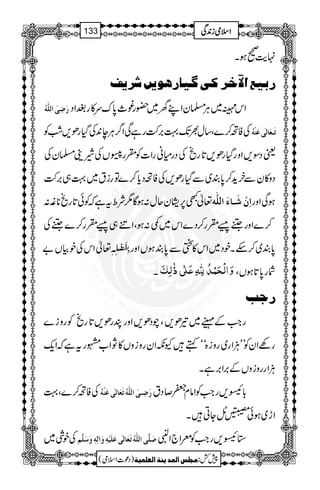 اسلامی زندگی 133
نہایت صحیح ہو۔
ربیع الآخر کی گیارھویں شریف
اس مہینہ میں ہر مسلمان اپنے گھر میں حضور غوث پاک سرکار بغداد رَضِیَ اللّٰهُ
تَعَالٰی عَنْہُ کی فاتحہ کرے، سال بھر تک بہت برکت رہے گی اگر ہر چاند کی گیارھویں شب کو
یعنی دسویں اور گیارھویں تاریخ کی درمیانی رات کو مقرر پیسوں کی شیرینی مسلمان کی
دوکان سے خرید کر پابندی سے گیارھویں کی فاتحہ دیا کرے تو رزق میں بہت ہی برکت
ہوگی اور اِنْ شَآءَ اللّٰه تعالٰی کبھی پریشان حال نہ ہوگا مگر شرط یہ ہے کہ کوئی تاریخ ناغہ نہ
کرے اور جتنے پیسے مقرر کردے اس میں کمی نہ ہو، اتنے ہی پیسے مقرر کرے جتنے کی
پابندی کرسکے۔ خود میں اس کا سختی سے پابند ہوں اور بفضلہٖ تعالٰی اس کی خوبیاں بے
شمار پاتا ہوں، وَالْحَمْدُ لِلّٰہِ عَلٰی ذٰلِکَ ۔
رجب
رجب کے مہینے میں تیرھویں، چودھویں اور پندرھویں تاریخ کو روزے
رکھے ان کو ”ہزاری روزہ“ کہتے ہیں کیونکہ ان روزوں کا ثواب مشہور یہ ہے کہ ایک
ہزار روزوں کے برابر ہے۔
بائیسویں رجب کو امام جعفر صادق رَضِیَ اللّٰهُ تَعَالٰی عَنْہُ کی فاتحہ کرے، بہت
اڑی ہوئی مصیبتیں ٹل جاتی ہیں۔
ستائیسویں رجب کو معراج النبی صَلَّی اللّٰهُ تَعَالٰی عَلَیْہِ وَاٰلِہٖ وَسَلَّم کی خوشی میں
پیش کش: مجلس المدینة العلمیة (دعوت اسلامی)